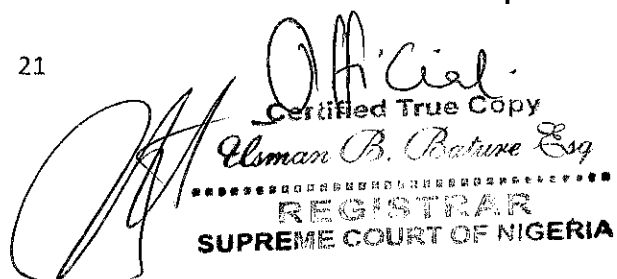 21
Official.
Certified True Copy
Usman B. Bature Esq
REGISTRAR
SUPREME COURT OF NIGERIA